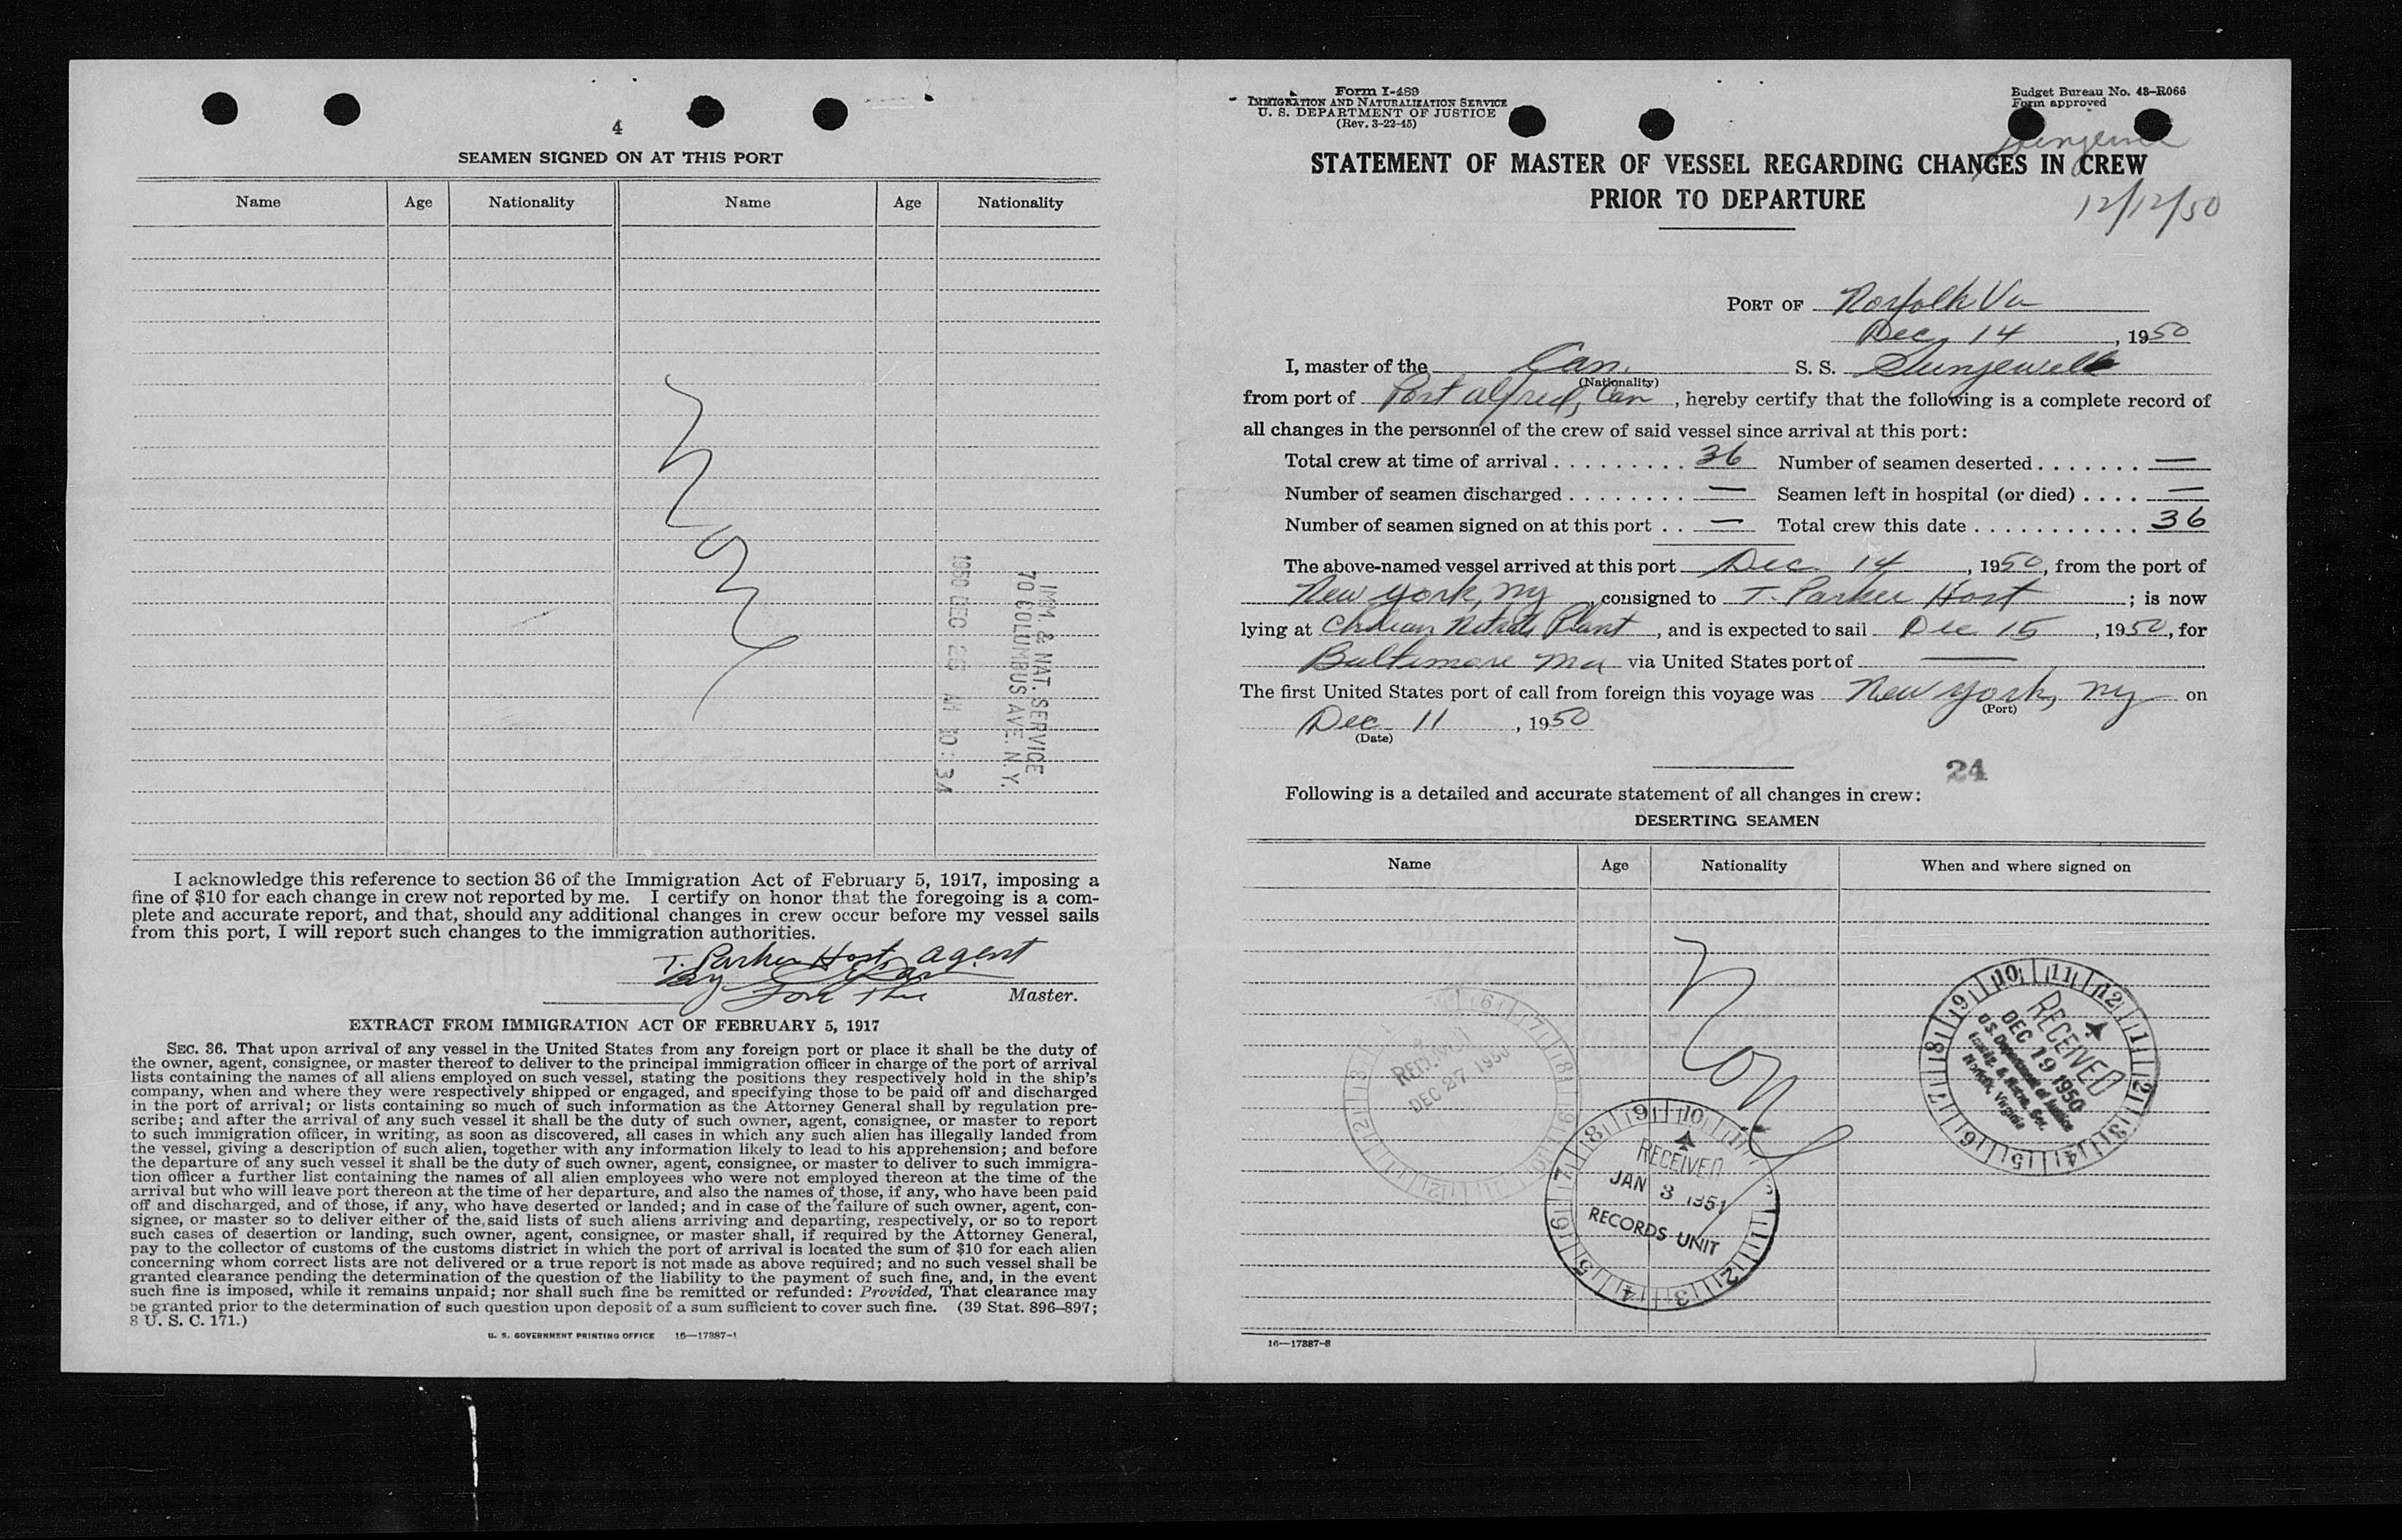 4
SEAMEN SIGNED ON AT THIS PORT
Name Age Nationality Name Age Nationality
None
IMM. & NAT. SERVICE
70 COLUMBUS AVE. N. Y.
1950 DEC 26 AM 10:34
I acknowledge this reference to section 36 of the Immigration Act of February 5, 1917, imposing a
fine of $10 for each change in crew not reported by me. I certify on honor that the foregoing is a com-
plete and accurate report, and that, should any additional changes in crew occur before my vessel sails
from this port, I will report such changes to the immigration authorities.
T. Parker Host, agent
by
For the Master.
EXTRACT FROM IMMIGRATION ACT OF FEBRUARY 5, 1917
SEC. 36. That upon arrival of any vessel in the United States from any foreign port or place it shall be the duty of
the owner, agent, consignee, or master thereof to deliver to the principal immigration officer in charge of the port of arrival
lists containing the names of all aliens employed on such vessel, stating the positions they respectively hold in the ship's
company, when and where they were respectively shipped or engaged, and specifying those to be paid off and discharged
in the port of arrival; or lists containing so much of such information as the Attorney General shall by regulation pre-
scribe; and after the arrival of any such vessel it shall be the duty of such owner, agent, consignee, or master to report
to such immigration officer, in writing, as soon as discovered, all cases in which any such alien has illegally landed from
the vessel, giving a description of such alien, together with any information likely to lead to his apprehension; and before
the departure of any such vessel it shall be the duty of such owner, agent, consignee, or master to deliver to such immigra-
tion officer a further list containing the names of all alien employees who were not employed thereon at the time of the
arrival but who will leave port thereon at the time of her departure, and also the names of those, if any, who have been paid
off and discharged, and of those, if any, who have deserted or landed; and in case of the failure of such owner, agent, con-
signee, or master so to deliver either of the said lists of such aliens arriving and departing, respectively, or so to report
such cases of desertion or landing, such owner, agent, consignee, or master shall, if required by the Attorney General,
pay to the collector of customs of the customs district in which the port of arrival is located the sum of $10 for each alien
concerning whom correct lists are not delivered or a true report is not made as above required; and no such vessel shall be
granted clearance pending the determination of the question of the liability to the payment of such fine, and, in the event
such fine is imposed, while it remains unpaid; nor shall such fine be remitted or refunded: Provided, That clearance may
be granted prior to the determination of such question upon deposit of a sum sufficient to cover such fine. (39 Stat. 896–897;
8 U. S. C. 171.)
U. S. GOVERNMENT PRINTING OFFICE 16—17387-1
Form I-489
IMMIGRATION AND NATURALIZATION SERVICE
U. S. DEPARTMENT OF JUSTICE
(Rev. 3-22-45)
Budget Bureau No. 43–R066
Form approved
Sunjewel
STATEMENT OF MASTER OF VESSEL REGARDING CHANGES IN CREW
PRIOR TO DEPARTURE
12/12/50
PORT OF Norfolk Va
Dec 14, 1950
I, master of the Can. S. S. Sunjewell
(Nationality)
from port of Port Alfred, Can, hereby certify that the following is a complete record of
all changes in the personnel of the crew of said vessel since arrival at this port:
Total crew at time of arrival . . . . . . . . . 36 Number of seamen deserted . . . . . . . —
Number of seamen discharged . . . . . . . . — Seamen left in hospital (or died) . . . . —
Number of seamen signed on at this port . . — Total crew this date . . . . . . . . . . . . 36
The above-named vessel arrived at this port Dec. 14, 1950, from the port of
New York, NY, consigned to T. Parker Host; is now
lying at Chilean Nitrate Plant, and is expected to sail Dec 15, 1950, for
Baltimore Md via United States port of —
The first United States port of call from foreign this voyage was New York, NY on
(Port)
Dec. 11, 1950
(Date)
24
Following is a detailed and accurate statement of all changes in crew:
DESERTING SEAMEN
Name Age Nationality When and where signed on
None
RECEIVED
DEC 19 1950
U.S. Department of Justice
Immig. & Natrl. Ser.
Norfolk, Virginia
RECEIVED
DEC 27 1950
RECEIVED
JAN 3 1951
RECORDS UNIT
16—17387-3